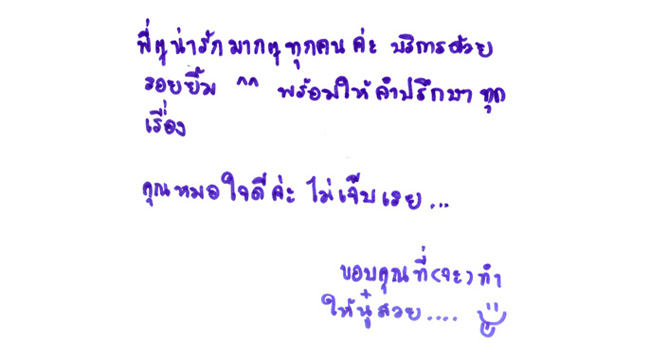 พี่ๆน่ารักมากๆทุกคนค่ะ บริการด้วย
รอยยิ้ม ^^ พร้อมให้คำปรึกษาทุก
เรื่อง
คุณหมอใจดีค่ะ ไม่เจ็บเลย...
ขอบคุณที่(จะ)ทำ
ให้นู๋สวย....